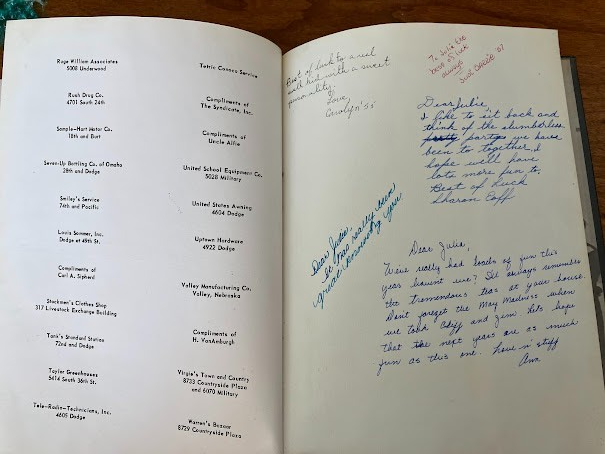 Ruge William Associates
5008 Underwood
Rush Drug Co.
4701 South 24th
Sample-Hart Motor Co.
18th and Burt
Seven-Up Bottling Co. of Omaha
28th and Dodge
Smiley's Service
74th and Pacific
Louis Sommer, Inc.
Dodge at 49th St.
Compliments of
Carl A. Sipherd
Stockmen's Clothes Shop
317 Livestock Exchange Building
Tank's Standard Station
72nd and Dodge
Taylor Greenhouses
5614 South 36th St.
Tele-Radio-Technicians, Inc.
4605 Dodge
Tetric Canoes Service
Compliments of
The Syndicate, Inc.
Compliments of
Uncle Alfie
United School Equipment Co.
5028 Military
United States Awning
4604 Dodge
Uptown Hardware
4922 Dodge
Valley Manufacturing Co.
Valley, Nebraska
Compliments of
H. VonAmburgh
Virgie's Town and Country
8733 Countryside Plaza
and 6070 Military
Warren's Bazaar
8729 Countryside Plaza
Best of luck to a real
swell kid with a sweet
personality.
Love,
Carolyn
To Julie the
best of luck
always
Dear Julie,
I like to sit back and
think of the slumberless
party we have
been to together. I
hope we'll have
lots more fun to.
Best of Luck
Sharon
Dear Julie
It has really been
great knowing you
Dear Julie,
We've really had loads of fun this
year haven't we? I'll always remember
the tremendous teas at your house.
Don't forget the May Madness when
we took and Jim. Let's hope
that the next years are as much
fun as this one. Love n' stuff
Ann